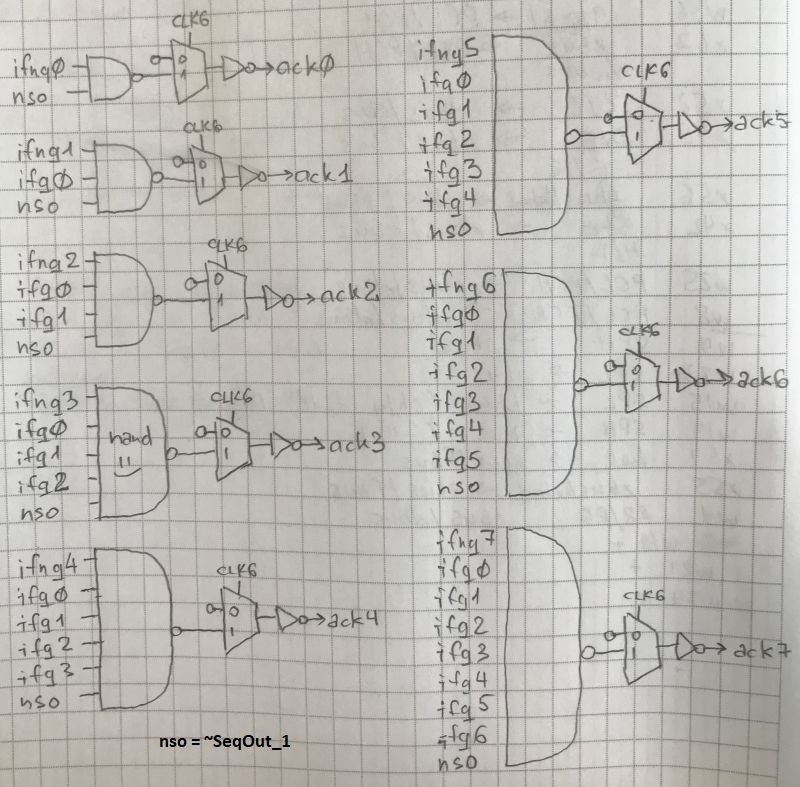 CLK6
ifng0
nso
0
1
ack0
CLK6
ifng1
ifg0
nso
0
1
ack1
CLK6
ifng2
ifg0
ifg1
nso
0
1
ack2
CLK6
ifng3
ifg0
ifg1
ifg2
nso
nand
0
1
ack3
CLK6
ifng4
ifg0
ifg1
ifg2
ifg3
nso
0
1
ack4
nso = ~SeqOut_1
CLK6
ifng5
ifg0
ifg1
ifg2
ifg3
ifg4
nso
0
1
ack5
CLK6
ifng6
ifg0
ifg1
ifg2
ifg3
ifg4
ifg5
nso
0
1
ack6
CLK6
ifng7
ifg0
ifg1
ifg2
ifg3
ifg4
ifg5
ifg6
nso
0
1
ack7